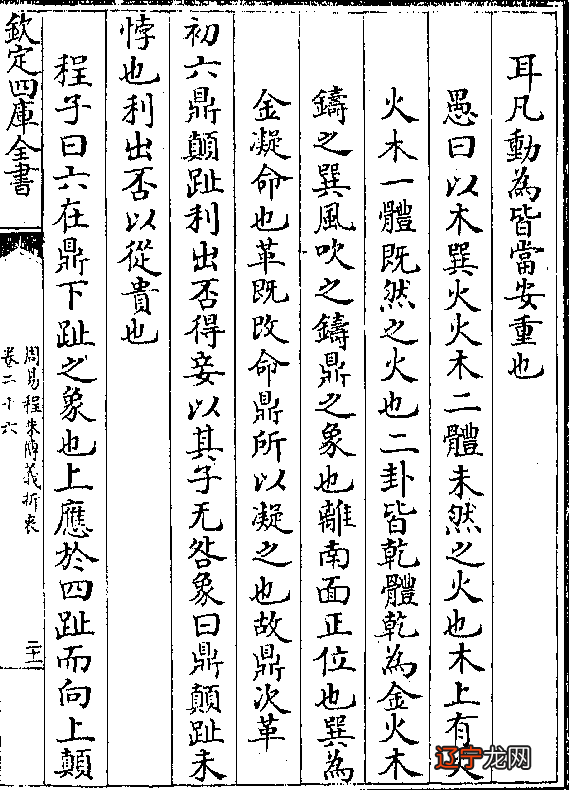 耳凡動為皆當安重也
愚曰以木巽火火木二體未然之火也木上有火
火木一體既然之火也二卦皆乾體乾為金火木
鑄之巽風吹之鑄鼎之象也離南面正位也巽為
金凝命也革既改命鼎所以凝之也故鼎次革
初六鼎顛趾利出否得妾以其子无咎象曰鼎顛趾未
悖也利出否以從貴也
程子曰六在鼎下趾之象也上應於四趾而向上顛
欽定四庫全書
周易程朱傳義折衷
卷二十六
二十二
辽宁龙网